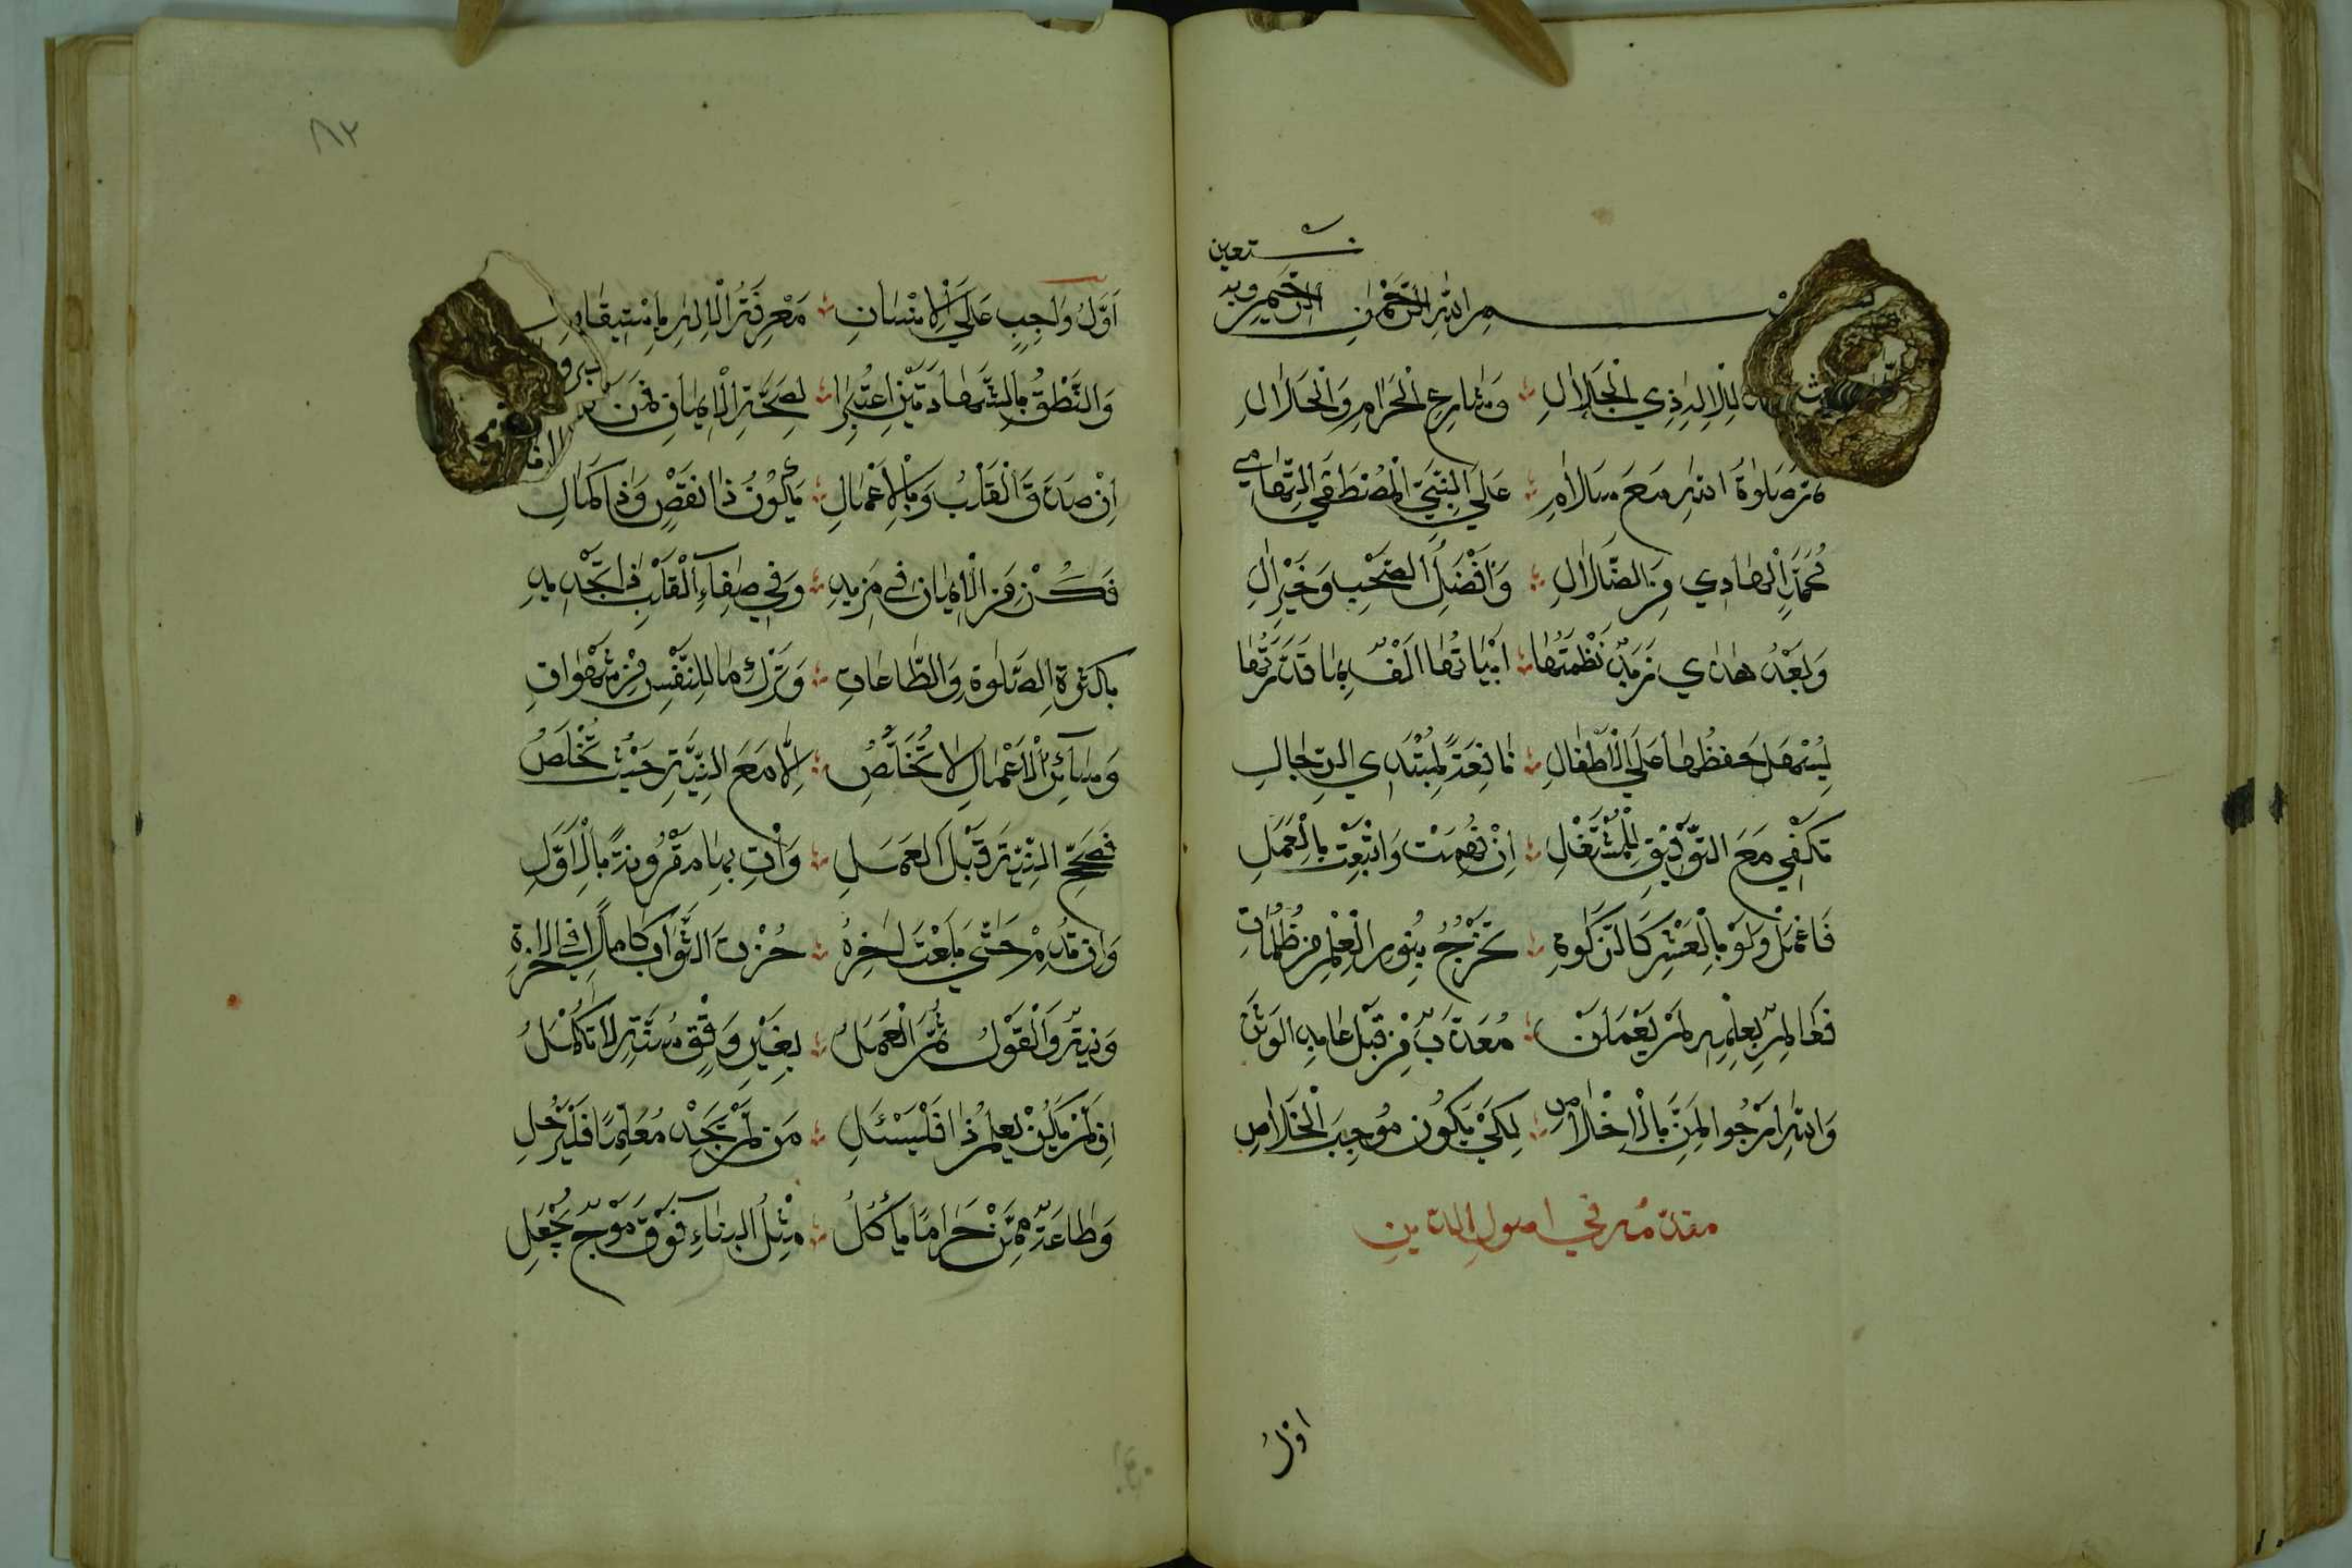 نستعين
بسم الله الرحمن الرحيم وبه
للاله ذي الجلال وشارع الحرام والحلال
ثم صلوة الله مع سلام على النبي المصطفى التهامي
محمد الهادي من الضلال وافضل الصحب وخير ال
وبعد هذي زبد نظمتها ابياتها الف بما قد زدتها
ليسهل حفظها على الاطفال نافعة لمبتدي الرجال
تكفي مع التوفيق للمشتغل ان فهمت واتبعت بالعمل
فاعمل ولو بالعشر كالزكوة تخرج بنور العلم من ظلمات
فعالم بعلمه لم يعملن معذب من قبل عابد الوثن
والله ارجوا لمن بالاخلاص لكي يكون موجب الخلاص
مقدمة في اصول الدين
اول
٨٢
اول واجب على الانسان معرفة الاله باستيقان
والنطق بالشهادتين اعتبرا لصحة الايمان ممن
ان صدق القلب وبالاعمال يكون ذا نقص وذا كمال
فكن من الايمان في مزيد وفي صفاء القلب ذا تجديد
بكثرة الصلوة والطاعات وترك ما للنفس من شهوات
وسائر الاعمال لا تخلص الا مع النية حيث تخلص
فصحح النية قبل العمل وات بها مقرونة بالاول
وان تدم حتى بلغت اخره حزت الثواب كاملا في الاخرة
ونية والقول ثم العمل بغير وفق سنة لا تكمل
ان لم يكن يعلم ذا فليسئل من لم يجد معلما فليرحل
وطاعة ممن حراما ياكل مثل البناء فوق موج يجعل